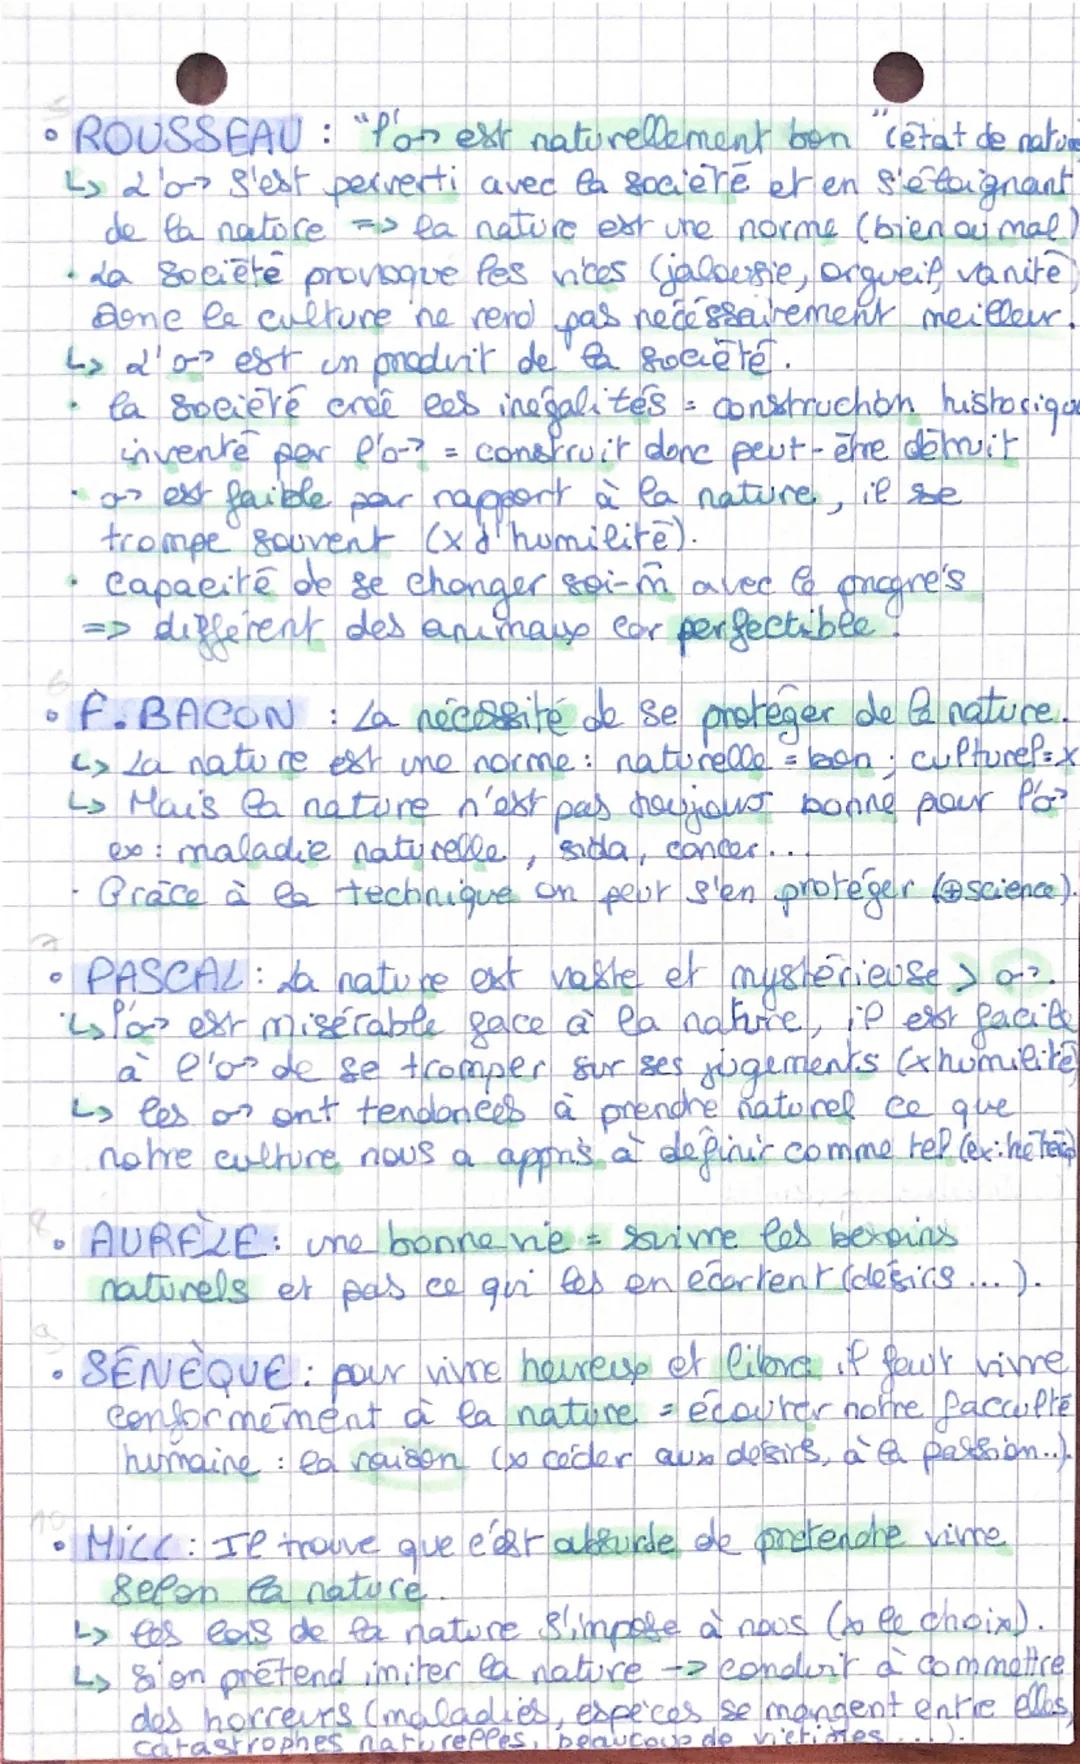 5
• ROUSSEAU : "l'♂ est naturellement bon" (état de nature
↳ L'♂ s'est perverti avec la société et en s'éloignant
de la nature => la nature est une norme (bien ou mal)
• La société provoque les vices (jalousie, orgueil, vanité)
Donc la culture ne rend pas nécessairement meilleur.
↳ L'♂ est un produit de la société.
• la société créé les inégalités = construction historique
inventé par l'♂ = construit donc peut-être détruit
• ♂ est faible par rapport à la nature, il se
trompe souvent (x d'humilité).
• Capacité de se changer soi-m̂ avec le progrès
=> différent des animaux car perfectible.
6
• F. BACON : La nécessité de se protéger de la nature.
↳ La nature est une norme : naturelle = bon ; culturel = x
↳ Mais la nature n'est pas toujours bonne pour l'♂
ex : maladie naturelle, sida, cancer...
· Grâce à la technique on peut s'en protéger (⊕science).
7
• PASCAL : La nature est vaste et mystérieuse > ♂.
↳ l'♂ est misérable face à la nature, il est facile
à l'♂ de se tromper sur ses jugements (x humilité)
↳ les ♂ ont tendances à prendre naturel ce que
notre culture nous a appris à définir comme tel (ex: hétéro)
8
• AURÈLE : une bonne vie = suivre les besoins
naturels et pas ce qui les en écartent (désirs...).
9
• SÉNÈQUE : pour vivre heureux et libre il faut vivre
conformément à la nature = écouter notre facculté
humaine : la raison (x céder aux désirs, à la passion..).
10
• MILL : Il trouve que c'est absurde de prétendre vivre
selon la nature.
↳ les lois de la nature s'impose à nous (x le choix).
↳ Si on prétend imiter la nature -> conduit à commettre
des horreurs (maladies, espèces se mangent entre elles,
catastrophes naturelles, beaucoup de victimes...).